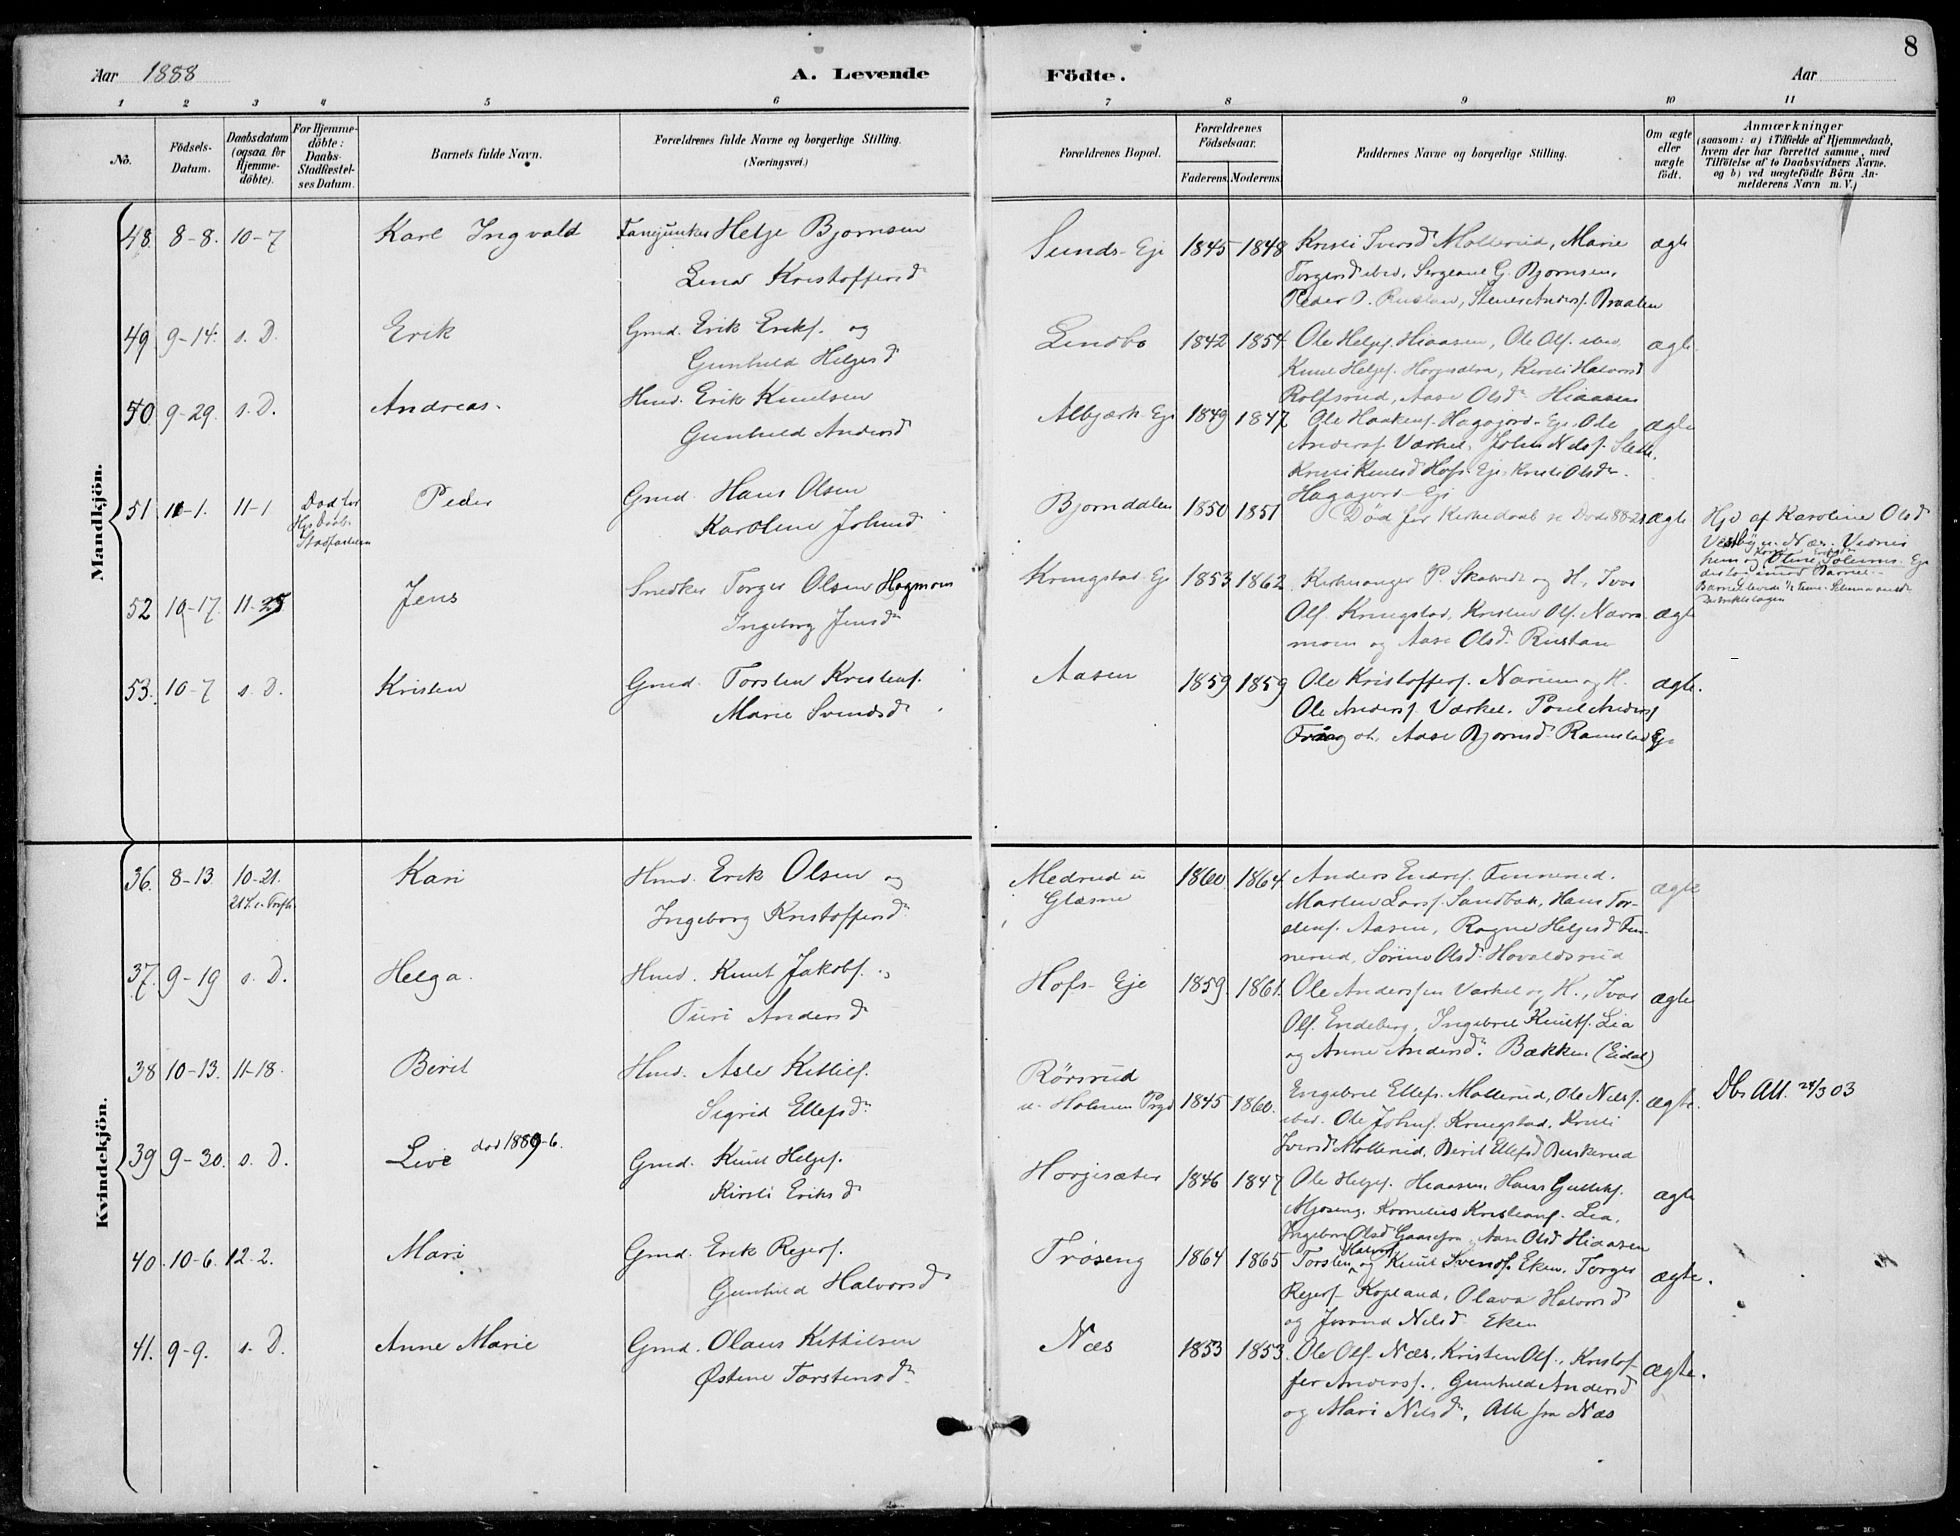 8
Aar 1888
A. Levende
Födte.
Aar
1 2 3 4 5 6 7 8 9 10 11
No.
Födsels-
Datum.
Daabsdatum
(ogsaa for
Hjemme-
döbte).
For Hjemme-
döbte:
Daabs-
Stadfæstel-
ses Datum.
Barnets fulde Navn.
Forældrenes fulde Navne og borgerlige Stilling.
(Næringsvei.)
Forældrenes Bopæl.
Forældrenes
Födselsaar.
Faderens. Moderens.
Faddernes Navne og borgerlige Stilling.
Om ægte
eller
uægte
födt.
Anmærkninger
(saasom: a) i Tilfælde af Hjemmedaab,
hvem der har forrettet samme, med
Tilföielse af to Daabsvidners Navne,
og b) ved uægtefödte Börn An-
melderens Navn m. V.)
Mandkjön.
48. 8-8. 10-7 Karl Ingvald Fanejunker Helge Bjørnsen
Lina Kristoffersd
Sunds-Eje 1845 1848 Kristi Iversd Mollerud, Marie ægte
Torgersd ibid, Sergeant G. Bjørnsen,
Peder O. Rustan, Stener Anders. Braaten
49 9-14. s. D. Erik Gmd. Erik Eriks. og
Gunhild Helgesd
Lindbo 1842 1854 Ole Helges. Hiaasen, Ole Ols. ibid ægte
Knut Helges. Horgesætra, Kirsti Halvorsd
Rolfsrud, Aase Olsd Hiaasen
50 9-29. s. D. Andreas. Hmd. Erik Knutsen
Gunhild Andersd
Albjærk-Eje 1849 1847 Ole Haakens. Hagajord-Eje, Ole ægte
Anders. Værket, John Nels. Slette,
Kristi Knutsd Hofs-Eje, Kristi Olsd
Hagajord-Eje
51 11-1. 11-1 Død før Peder Gmd. Hans Olsen
Karoline Johnsd
Bjørndalen 1850 1851 Død før Kirkedaab se Døde 88-21 ægte
Hjd af Karoline Olsd
52 10-17. 11-25 Jens Snedker Torger Olsen Hagmoen
Ingeborg Jensd
Kringstad-Eje 1853 1862 Kirkesanger P. Skatvedt og H., Ivar
Ols. Kringstad, Kristen Ols. Narve- ægte
moen og Aase Olsd Rustan
53. 10-7 s. D. Kristen Gmd. Torsten Kristens.
Marie Svendsd
Aasen 1859 1859 Ole Kristoffers. Narum og H. ægte.
Ole Anders. Værket, Poul Anders.
Aase Bjørnsd Ramstad Eje
Kvindekjön.
36. 8-13. 10-21. Kari Hmd. Erik Olsen og
Ingeborg Kristoffersd
Medrud u
Glæsne
1860 1864 Anders Endres. Finnerud, ægte
Marten Lars. Sandbak, Hans Tor-
stens. Aasen, Ragne Helgesd Fin-
nerud, Sörine Olsd Hovaldsrud
37. 9-19 s. D. Helga. Hmd. Knut Jakobs. og
Turi Andersd
Hofs-Eje 1859. 1861. Ole Anderssen Værket og H., Ivar ægte
Ols. Endeberg, Ingebret Knuts. Lia
og Anne Andersd. Bækken (Eidal)
38 10-13. 11-18. Berit Hmd. Asle Kittils.
Sigrid Ellefsd
Rörsrud
u. Holmen Prgd 1845 1860. Engebret Ellefs. Mollerud, Ole Nels. ægte.
ibid. Ole Johns. Kringstad, Kristi
Iversd Mollerud, Berit Ellefsd Buskerud
Db. Att. 24/3 03
39 9-30. s. D. Live død 1889-6. Gmd. Knut Helges.
Kirsti Eriksd
Horgesæter 1846 1847 Ole Helges. Hiaasen, Hans Gulliks. ægte
Mjøseng, Kornelius Kristians. Lia,
Ingebor Olsd Aase Olsd Hiaasen
40. 10-6. 12-2. Mari Gmd. Erik Rejers.
Gunhild Halvorsd
Trøseng 1864 1865 Torsten Halvors. og Knut Svends. Eken, Torger ægte.
Rejers. Kopland, Olava Halvorsd
og Jorand Nilsd Eken
41. 9-9. s. D. Anne Marie Gmd. Olaus Kittilsen
Østine Torstensd
Næs 1853 1853. Ole Ols. Næs, Kristen Ols., Kristof- ægte.
fer Anders., Gunhild Andersd
og Mari Nelsd, Alle fra Næs